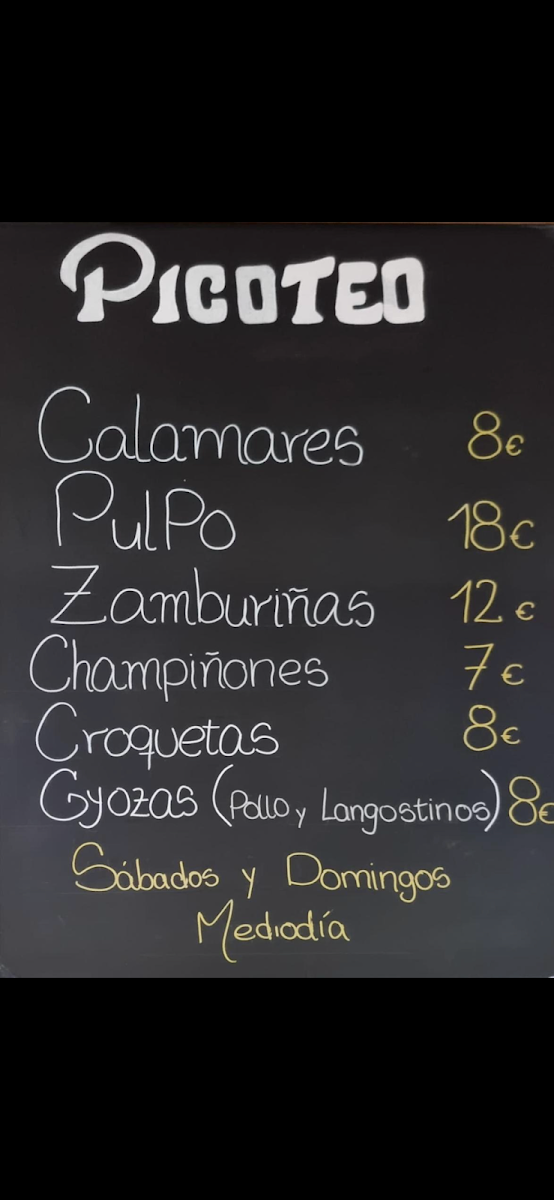 PICOTEO
Calamares 8€
PulPo 18€
Zamburiñas 12€
Champiñones 7€
Croquetas 8€
Gyozas (Pollo y Langostinos) 8€
Sábados y Domingos
Mediodía